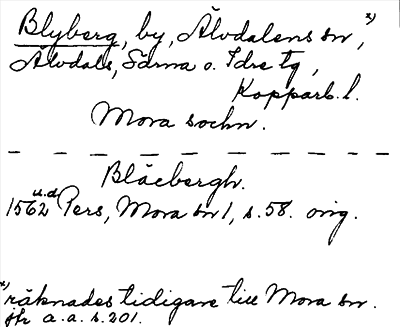 Blyberg, by, Älvdalens sn, x)
Älvdals, Särna o. Idre tg,
Kopparb. l.
Mora sochn.
Blåebergh.
1562 u.d. Pers, Mora sn 1, s. 58. orig.
x) räknades tidigare till Mora sn.
jfr a.a. s. 201.